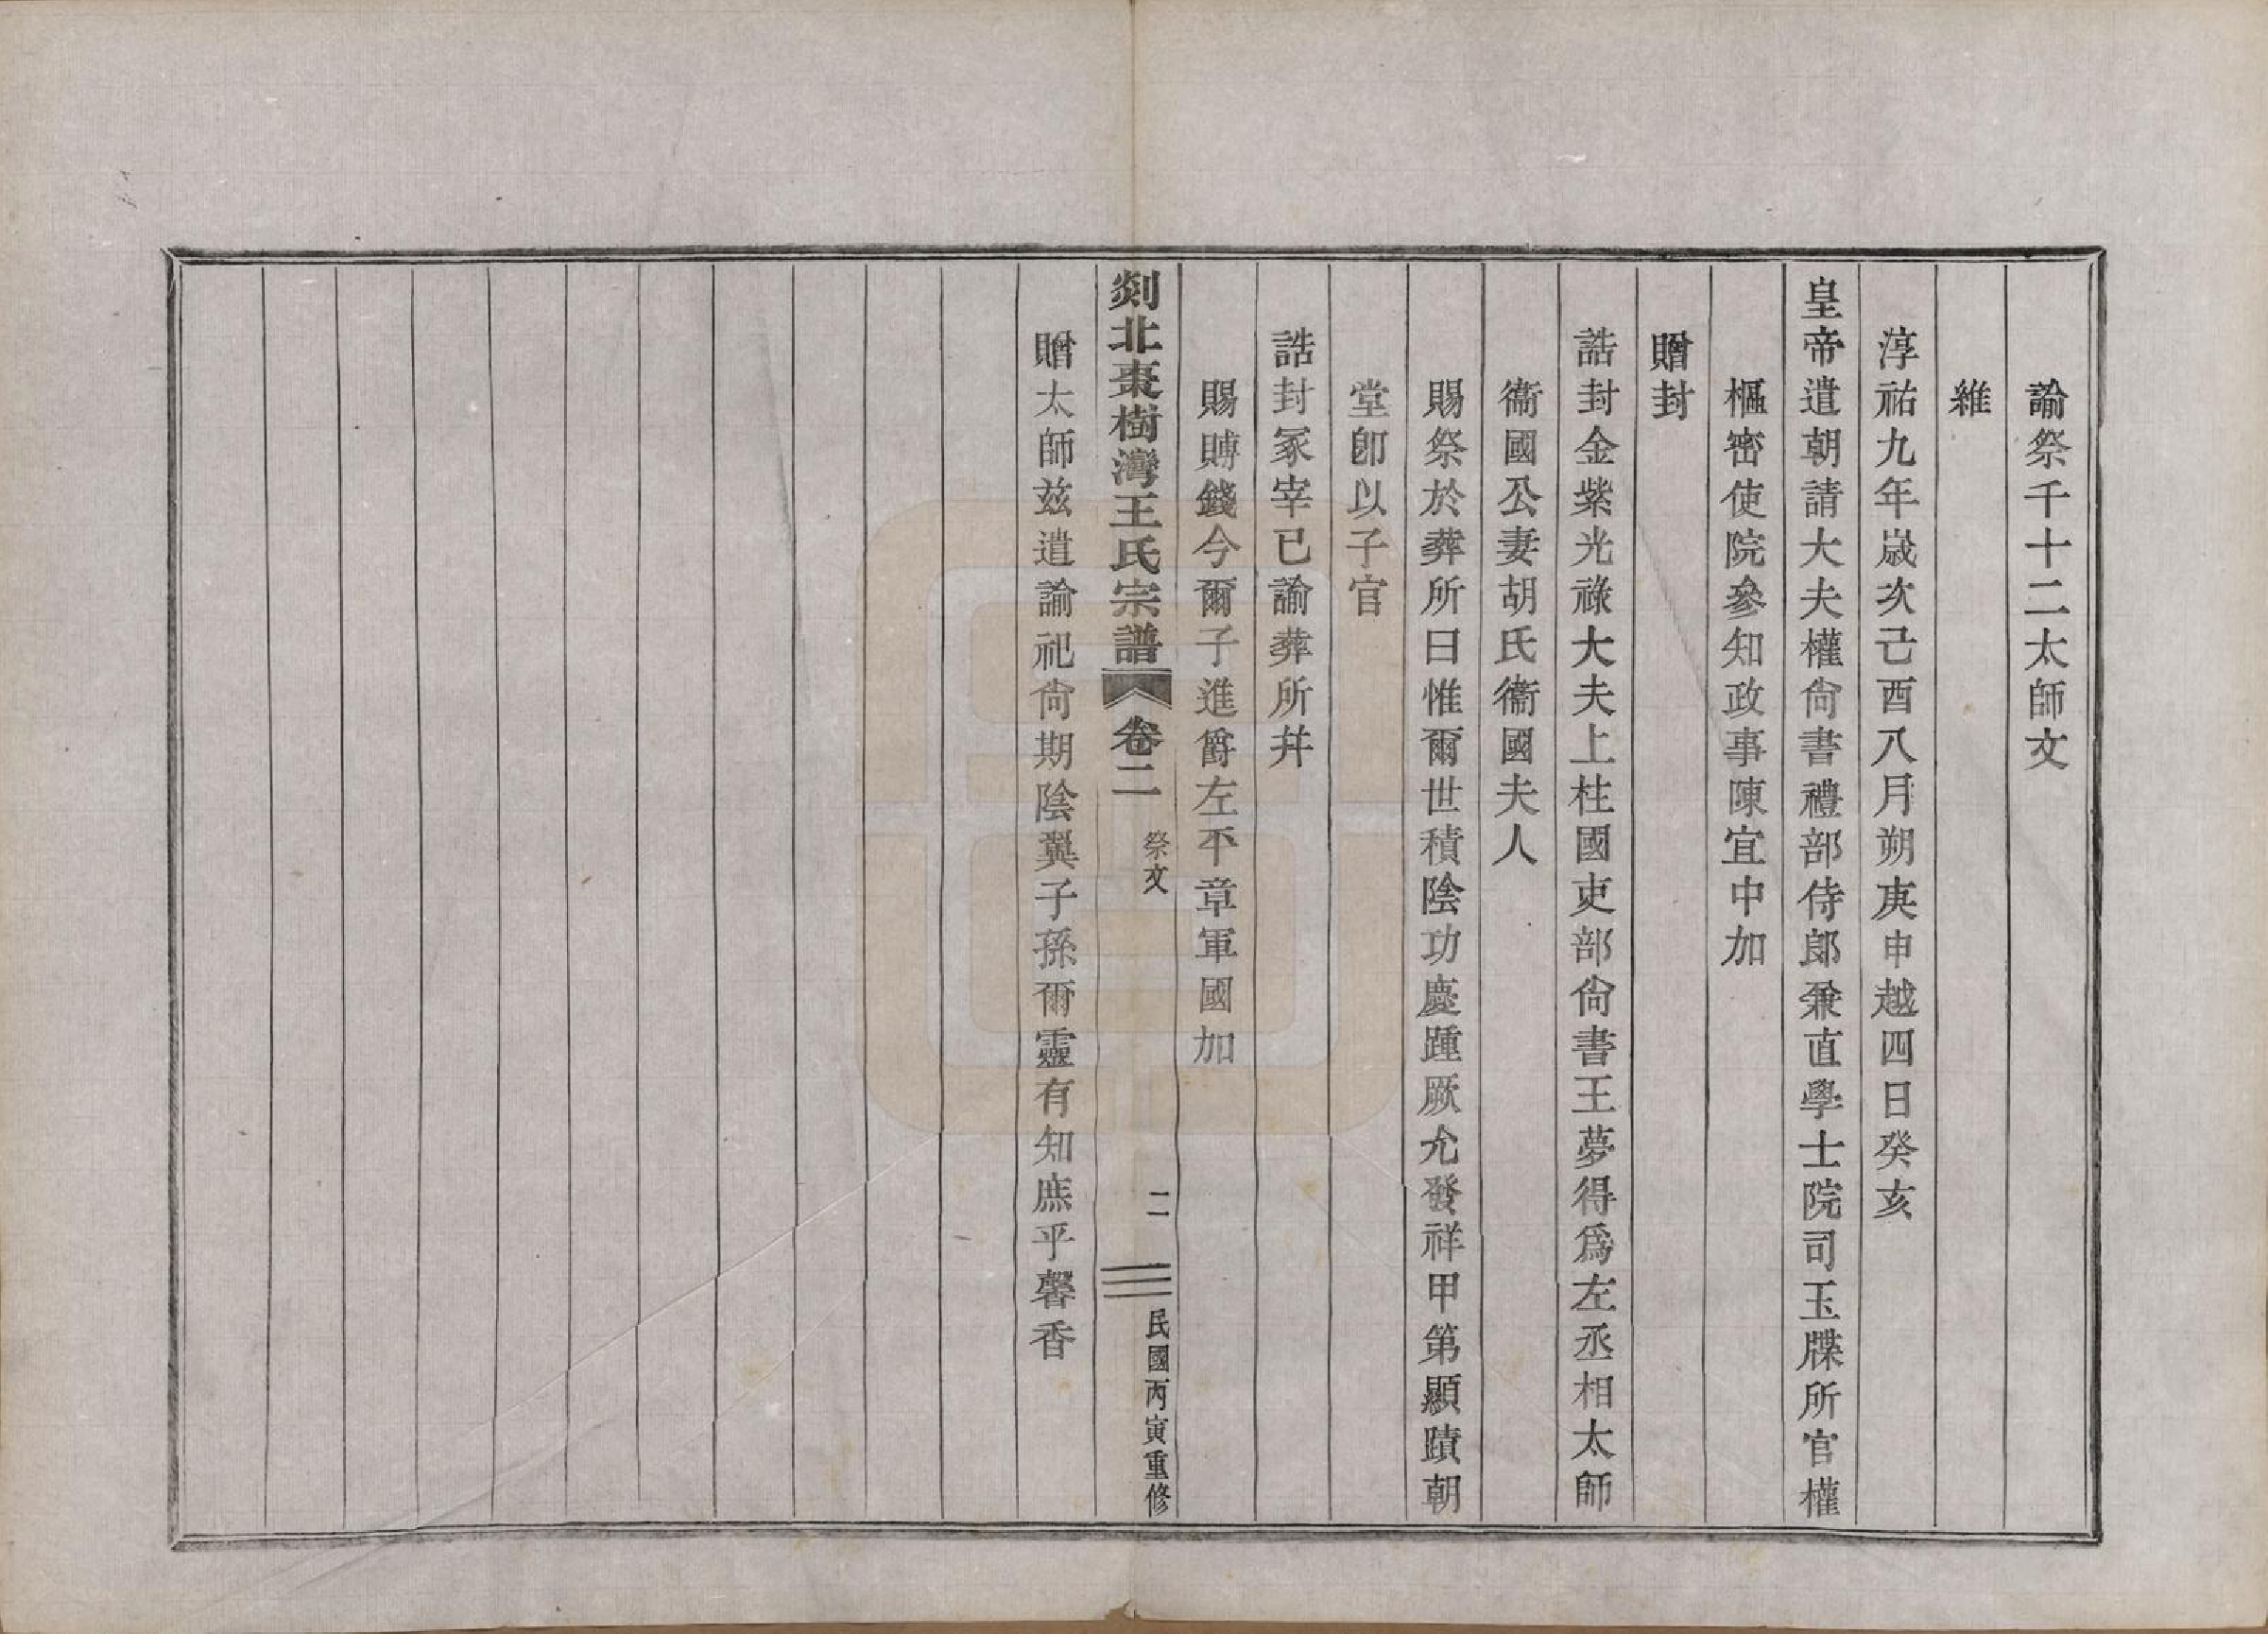 諭祭千十二太師文
維
淳祐九年歲次己酉八月朔庚申越四日癸亥
皇帝遣朝請大夫權尙書禮部侍郎兼直學士院司玉牒所官權
樞密使院參知政事陳宜中加
贈封
誥封金紫光祿大夫上柱國吏部尙書王夢得爲左丞相太師
衞國公妻胡氏衞國夫人
賜祭於葬所曰惟爾世積陰功慶踵厥允發祥甲第顯蹟朝
堂卽以子官
誥封冢宰已諭葬所幷
賜賻錢今爾子進爵左平章軍國加
剡北棗樹灣王氏宗譜
卷二
祭文
二
民國丙寅重修
贈太師茲遣諭祀尙期陰翼子孫爾靈有知庶乎馨香